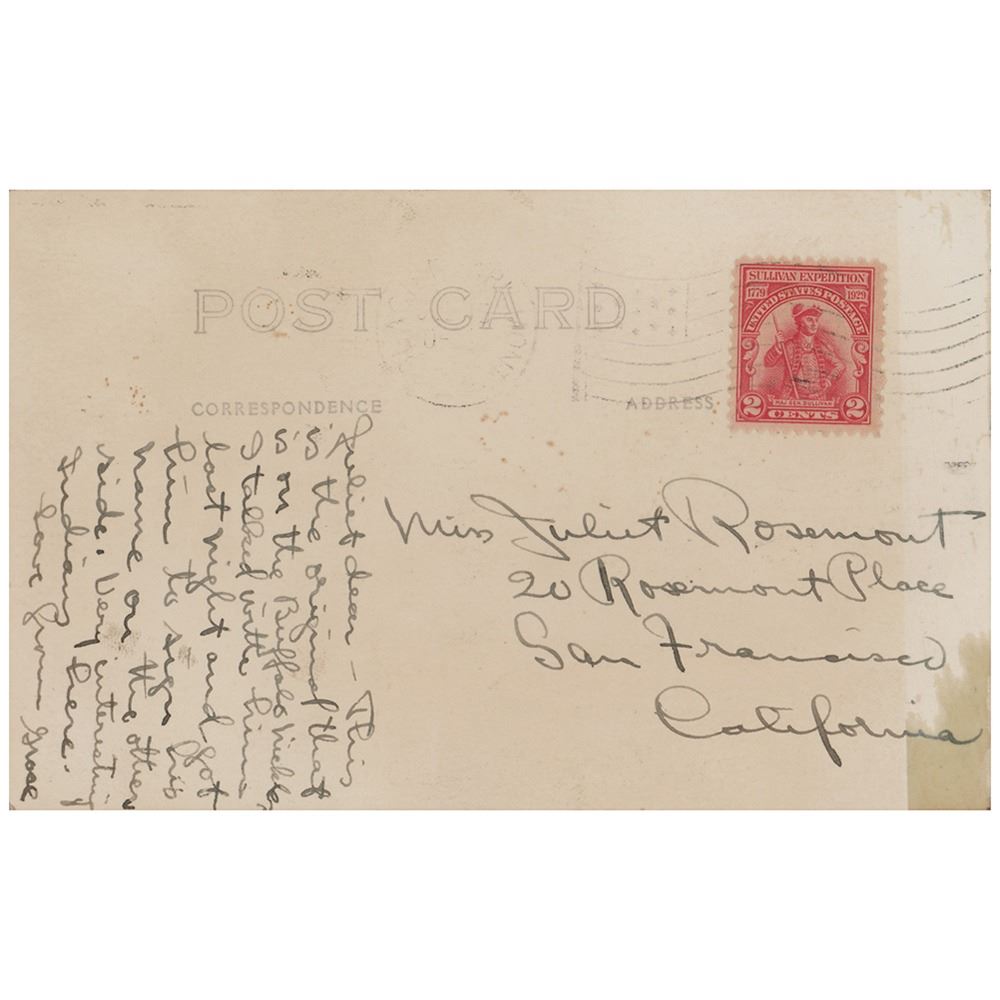 POST CARD
SULLIVAN EXPEDITION
1779 1929
UNITED STATES POSTAGE
MAJ. GEN. SULLIVAN
2 CENTS 2
CORRESPONDENCE
ADDRESS
Juliet dear - This
is the original that
is on the Buffalo Nickle
I talked with him
last night and got
him to sign his
name on the other
side. Very interesting
Indians here.
Love from
Miss Juliet Rosemont
20 Rosemont Place
San Francisco
California